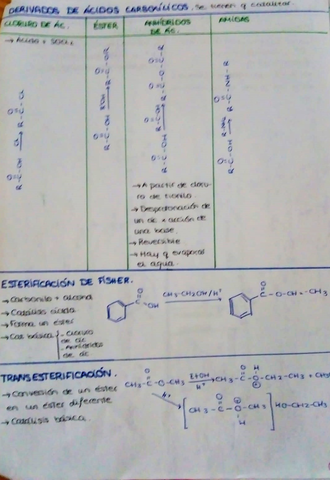 DERIVADOS DE ÁCIDOS CARBOXÍLICOS. Se tienen q catalizar.
CLORURO DE ÁC. ÉSTER ANHÍDRIDOS DE ÁC. AMIDAS
→ Ácido + SOCl₂
R-C-OH → R-C-Cl
R-C-OH → R-C-OR
R-C-OH → R-C-O-C-R
R-C-OH → R-C-NH-R
→ A partir de cloru-
ro de
→ Desprotonación de
un ác x acción de
una base.
→ Reversible
→ Hay q evaporar
el agua.
ESTERIFICACIÓN DE FISHER.
→ Carbonilo + alcohol
→ Catálisis ácida
→ Forma un éster
→ Cat básica: - cloruro
de ác
- Anhídrido
de ác
O
C
OH
CH₃-CH₂OH/H⁺
O
C
TRANSESTERIFICACIÓN.
→ Conversión de un éster
en un éster diferente
→ Catálisis básica.
CH₃-C-O-CH₃
EtOH
H⁺
CH₃-C-O-CH₂-CH₃ +
[CH₃-C-O-CH₃] HO-CH₂-CH₃